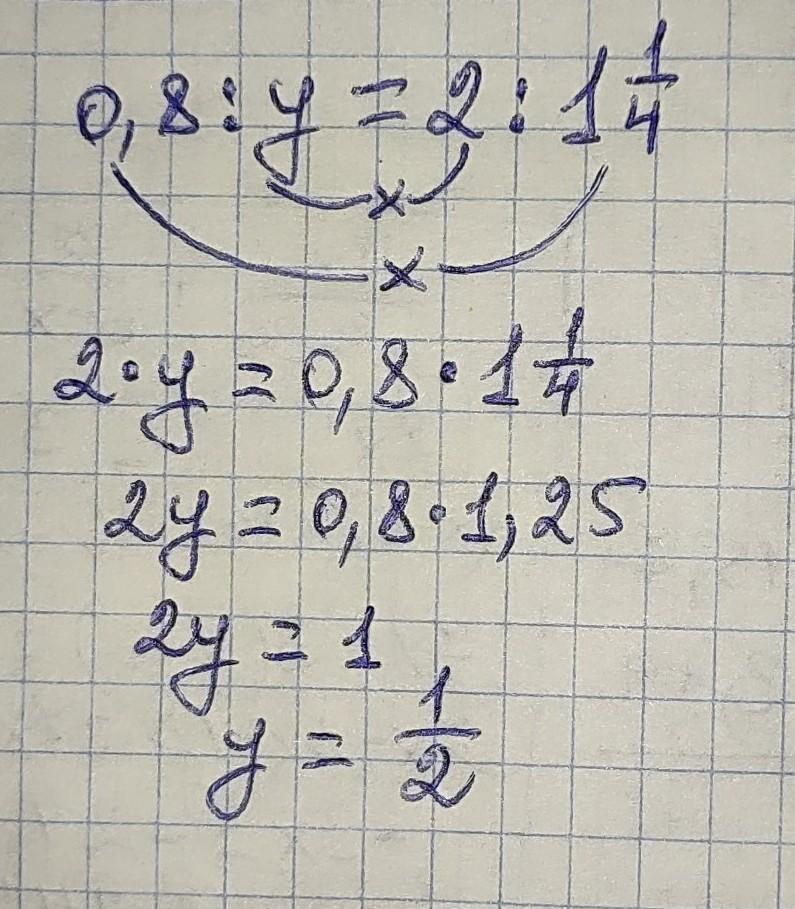 0,8 : y = 2 : 1 1/4
x
x
2 · y = 0,8 · 1 1/4
2y = 0,8 · 1,25
2y = 1
y = 1/2